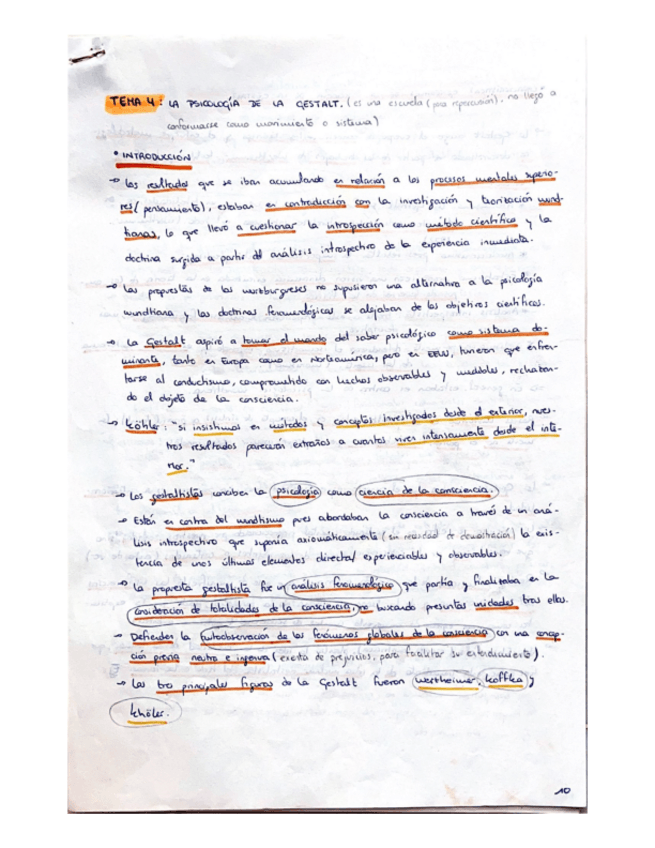 TEMA 4: LA PSICOLOGÍA DE LA GESTALT. (es una escuela (por repercusión), no llegó a
conformarse como movimiento o sistema)
• INTRODUCCIÓN
→ Los resultados que se iban acumulando en relación a los procesos mentales superio-
res (pensamiento), estaban en contradicción con la investigación y teorización wund-
tianas, lo que llevó a cuestionar la introspección como método científico y la
doctrina surgida a partir del análisis introspectivo de la experiencia inmediata.
→ Las propuestas de los wurzburgueses no supusieron una alternativa a la psicología
wundtiana y las doctrinas fenomenológicas se alejaban de los objetivos científicos.
→ La Gestalt aspiró a tomar el mando del saber psicológico como sistema do-
minante, tanto en Europa como en Norteamérica, pero en EEUU, tuvieron que enfren-
tarse al conductismo, comprometido con hechos observables y medibles, rechazan-
do el objeto de la consciencia.
→ Köhler: "si insistimos en métodos y conceptos investigados desde el exterior, nues-
tros resultados parecerán extraños a cuantos viven intensamente desde el inte-
rior."
→ Los gestaltistas conciben la psicología como ciencia de la consciencia.
→ Están en contra del wundtismo pues abordaban la consciencia a través de un aná-
lisis introspectivo que suponía axiomáticamente (sin necesidad de demostración) la exis-
tencia de unos últimos elementos direct/ experienciables y observables.
→ La propuesta gestaltista fue un análisis fenomenológico que partía y finalizaba en la
consideración de totalidades de la consciencia, no buscando presuntas unidades tras ellas.
→ Defienden la autoobservación de los fenómenos globales de la consciencia con una concep-
ción previa neutra e ingenua (exenta de prejuicios, para facilitar su entendimiento).
→ Las tres principales figuras de la Gestalt fueron Wertheimer, Koffka y
Khöler.
10